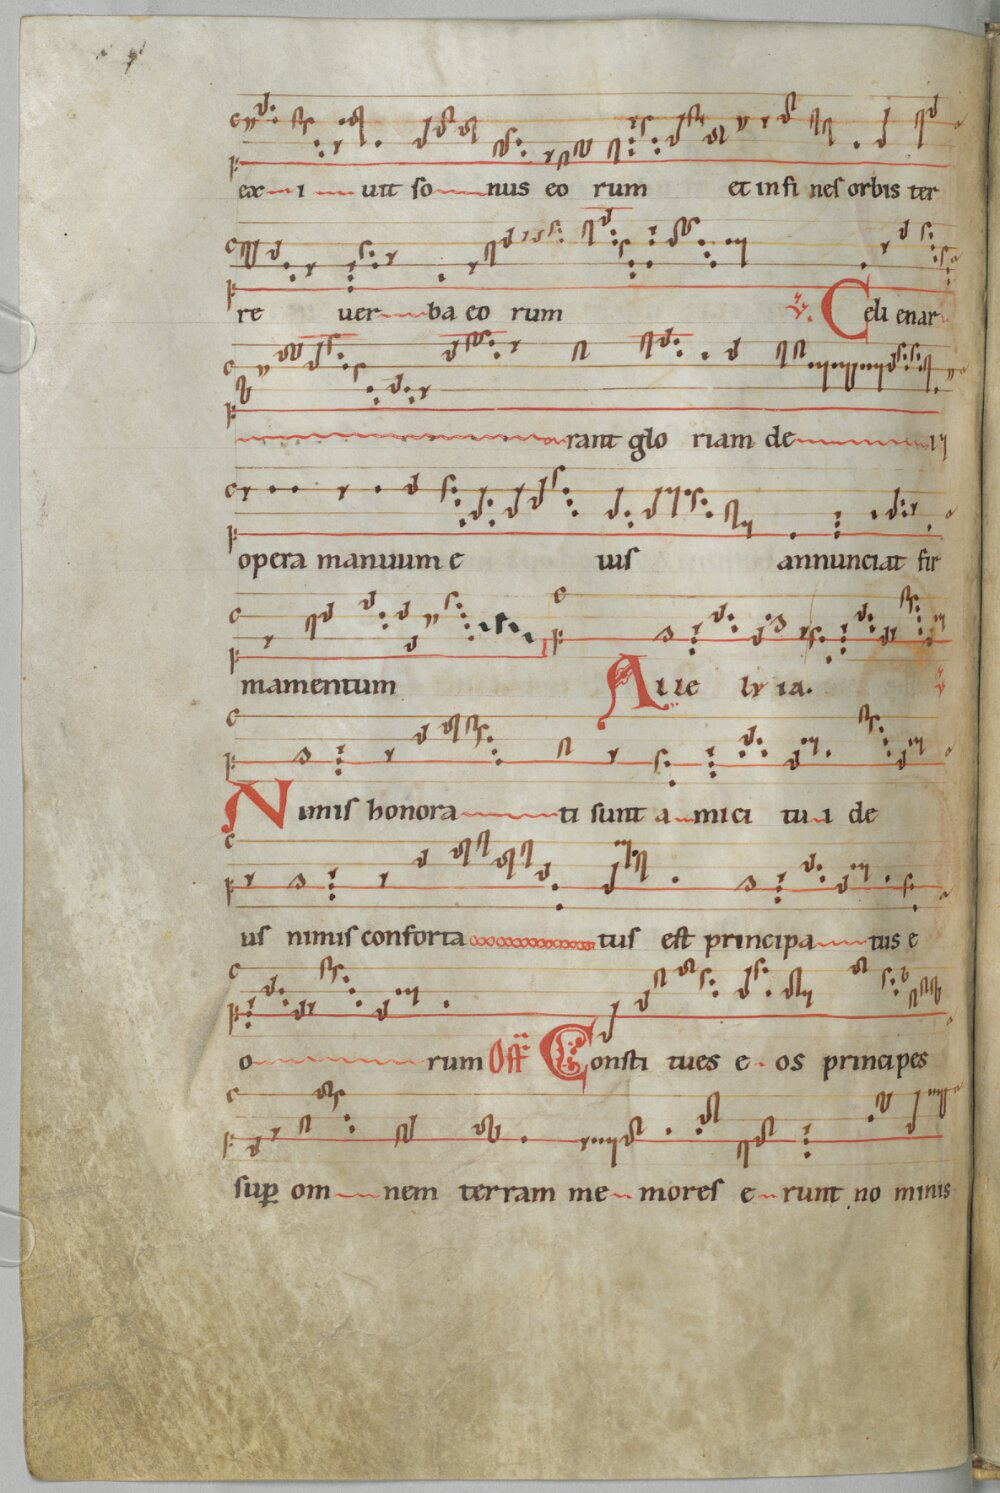 ex i uit so nus eo rum et in fi nes orbis ter
re uer ba eo rum ℣. Celi enar
rant glo riam de i
opera manuum e ius annunciat fir
mamentum Alle lu ia. ℣
Nimis honora ti sunt a mici tu i de
us nimis conforta tus est principa tus e
o rum Off Consti tues e os principes
sup om nem terram me mores e runt no minis